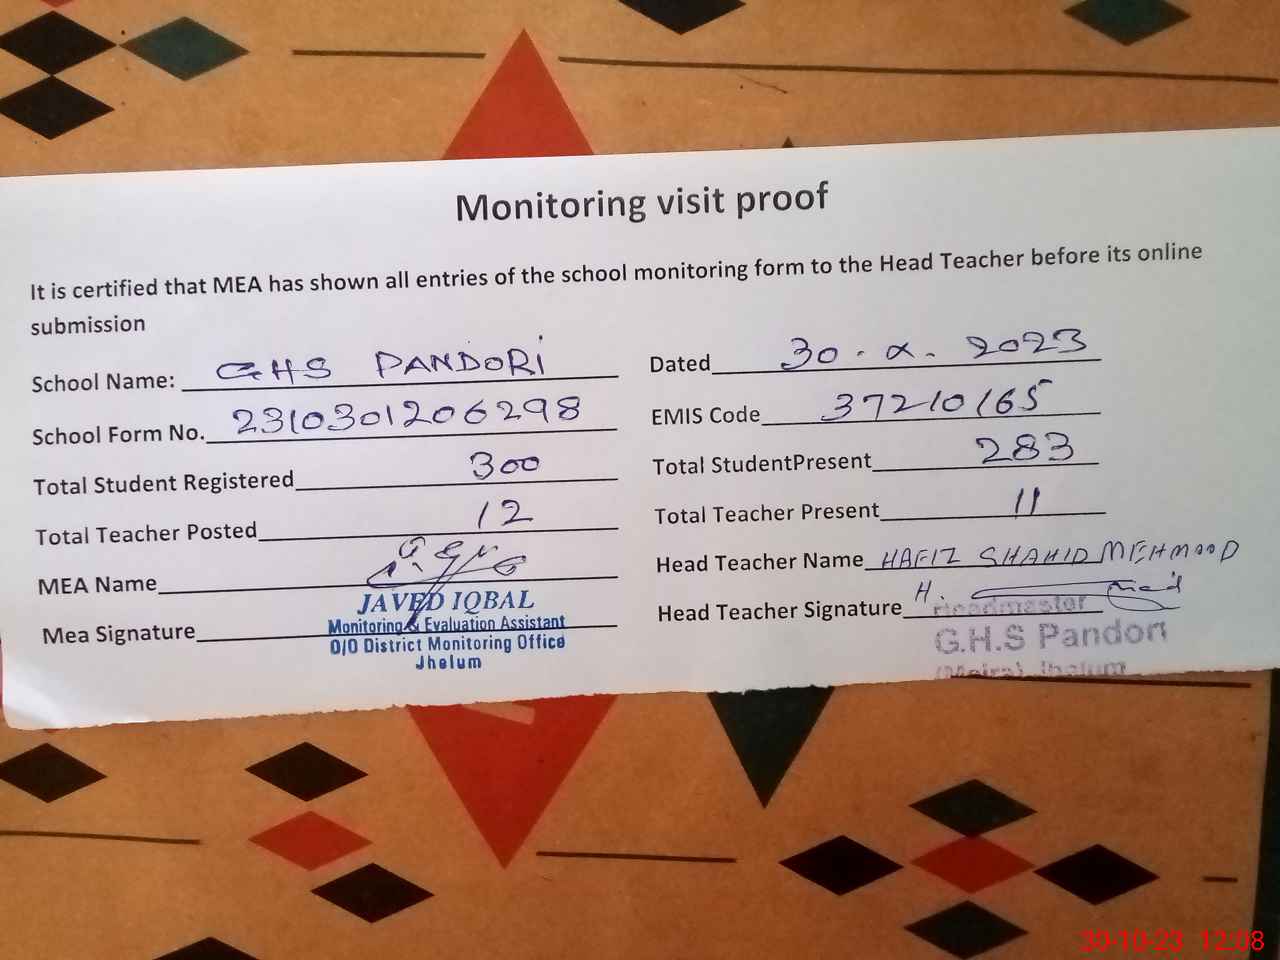 Monitoring visit proof
It is certified that MEA has shown all entries of the school monitoring form to the Head Teacher before its online
submission
School Name: GHS PANDORi
Dated 30. x. 2023
School Form No. 2310301206298
EMIS Code 37210165
Total Student Registered 300
Total StudentPresent 283
Total Teacher Posted 12
Total Teacher Present 11
MEA Name
Head Teacher Name HAFIZ SHAHID MEHMOOD
JAVED IQBAL
Mea Signature
Monitoring & Evaluation Assistant
O/O District Monitoring Office
Jhelum
Head Teacher Signature H.
Headmaster
G.H.S Pandori
(Moira) Jhelum
30-10-23 12:08